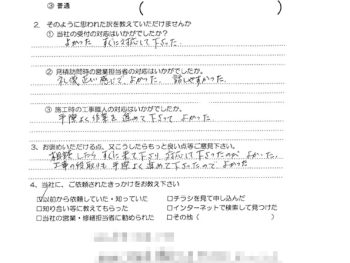 ③ 普通 (
2. そのように思われた訳を教えていただけませんか
① 当社の受付の対応はいかがでしたか?
よかった すぐに対応して下さった.
② 見積訪問時の営業担当者の対応はいかがでしたか。
礼儀正しい感じで、よかった. 話しやすかった.
③ 施工時の工事職人の対応はいかがでしたか。
手際よく作業を進めて下さって よかった.
3. お褒めいただける点、又こうしたらもっと良い点等ご意見下さい。
相談したら すぐに来て下さり 対応して下さったのが よかった.
工事の段取りも 手際よく 進めて下さったので、よかった.
4. 当社に、ご依頼されたきっかけをお教え下さい
☑以前から依頼していた・知っていた □チラシを見て申し込んだ
□知り合い等に教えてもらった □インターネットで検索して見つけた
□当社の営業・修繕担当者に勧められた □その他 (          )